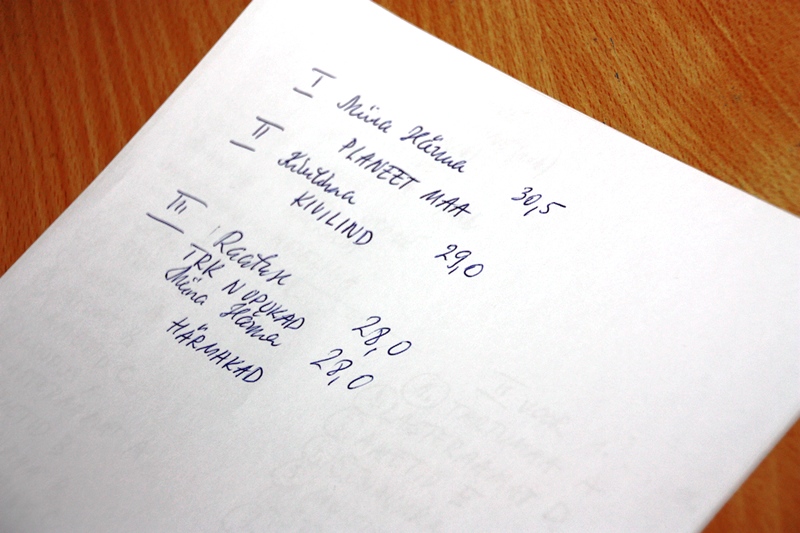 I Miina Härma
PLANEET MAA 30,5
II Kivilinna
KIVILIND 29,0
III Raatuse
TRK NUPUKAD 28,0
Miina Härma
HÄRMAKAD 28,0